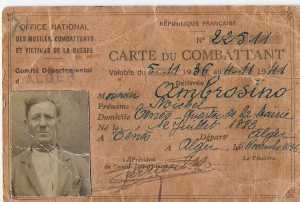 OFFICE NATIONAL
DES MUTILÉS, COMBATTANTS
ET VICTIMES DE LA GUERRE
Comité Départemental
d'ALGER
RÉPUBLIQUE FRANÇAISE
No 22511
CARTE DU COMBATTANT
Valable du 5-11 36 au 4-11 1941
Délivrée à
Monsieur Ambrosino
Prénoms Michel
Domicile Ténès Quartier de la Marine
Né le Juillet 1886
à Ténès Départ Alger
A Alger le Novembre 1936
Le Président
du Comité Départemental
Le Titulaire